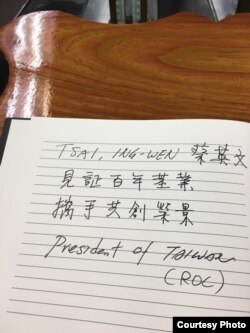 TSAI, ING-WEN 蔡英文
見証百年基業
攜手共創榮景
President of TAIWAN
(ROC)
Courtesy Photo